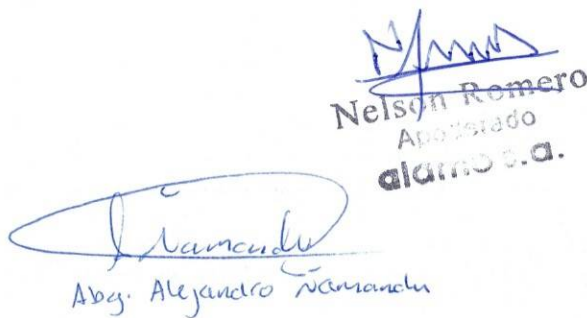 Nelson Romero
Apoderado
alamo s.a.
Ñamandu
Abg. Alejandro Ñamandu